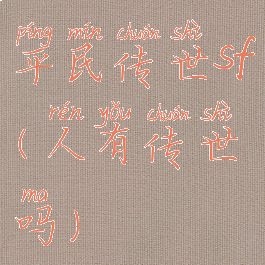 píng mín chuán shì
平民传世sf
rén yǒu chuán shì
(人有传世
ma
吗)